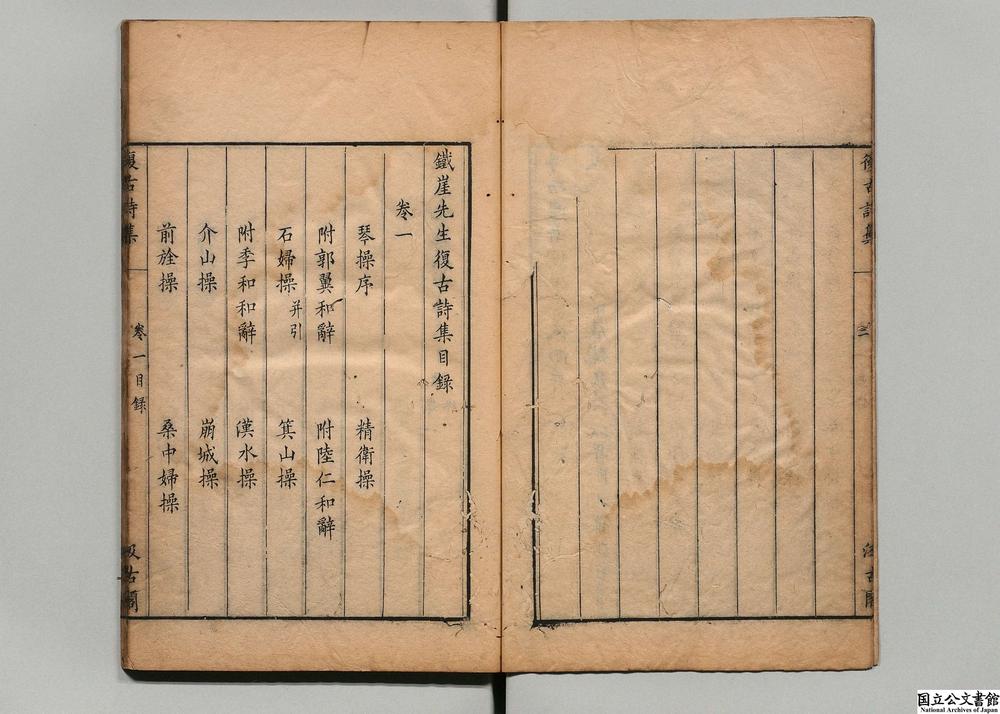 復古詩集
二
汲古閣
鐵崖先生復古詩集目録
卷一
琴操序
精衛操
附郭翼和辭
附陸仁和辭
石婦操并引
箕山操
附季和和辭
漢水操
介山操
崩城操
前旌操
桑中婦操
復古詩集
卷一目録
汲古閣
国立公文書館
National Archives of Japan